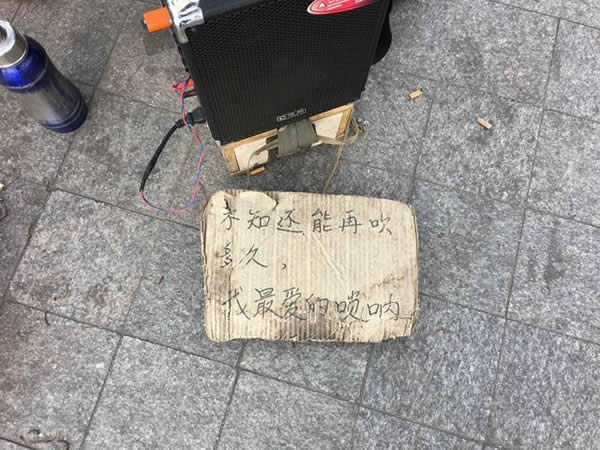 未知还能再吹
多久，
我最爱的唢呐